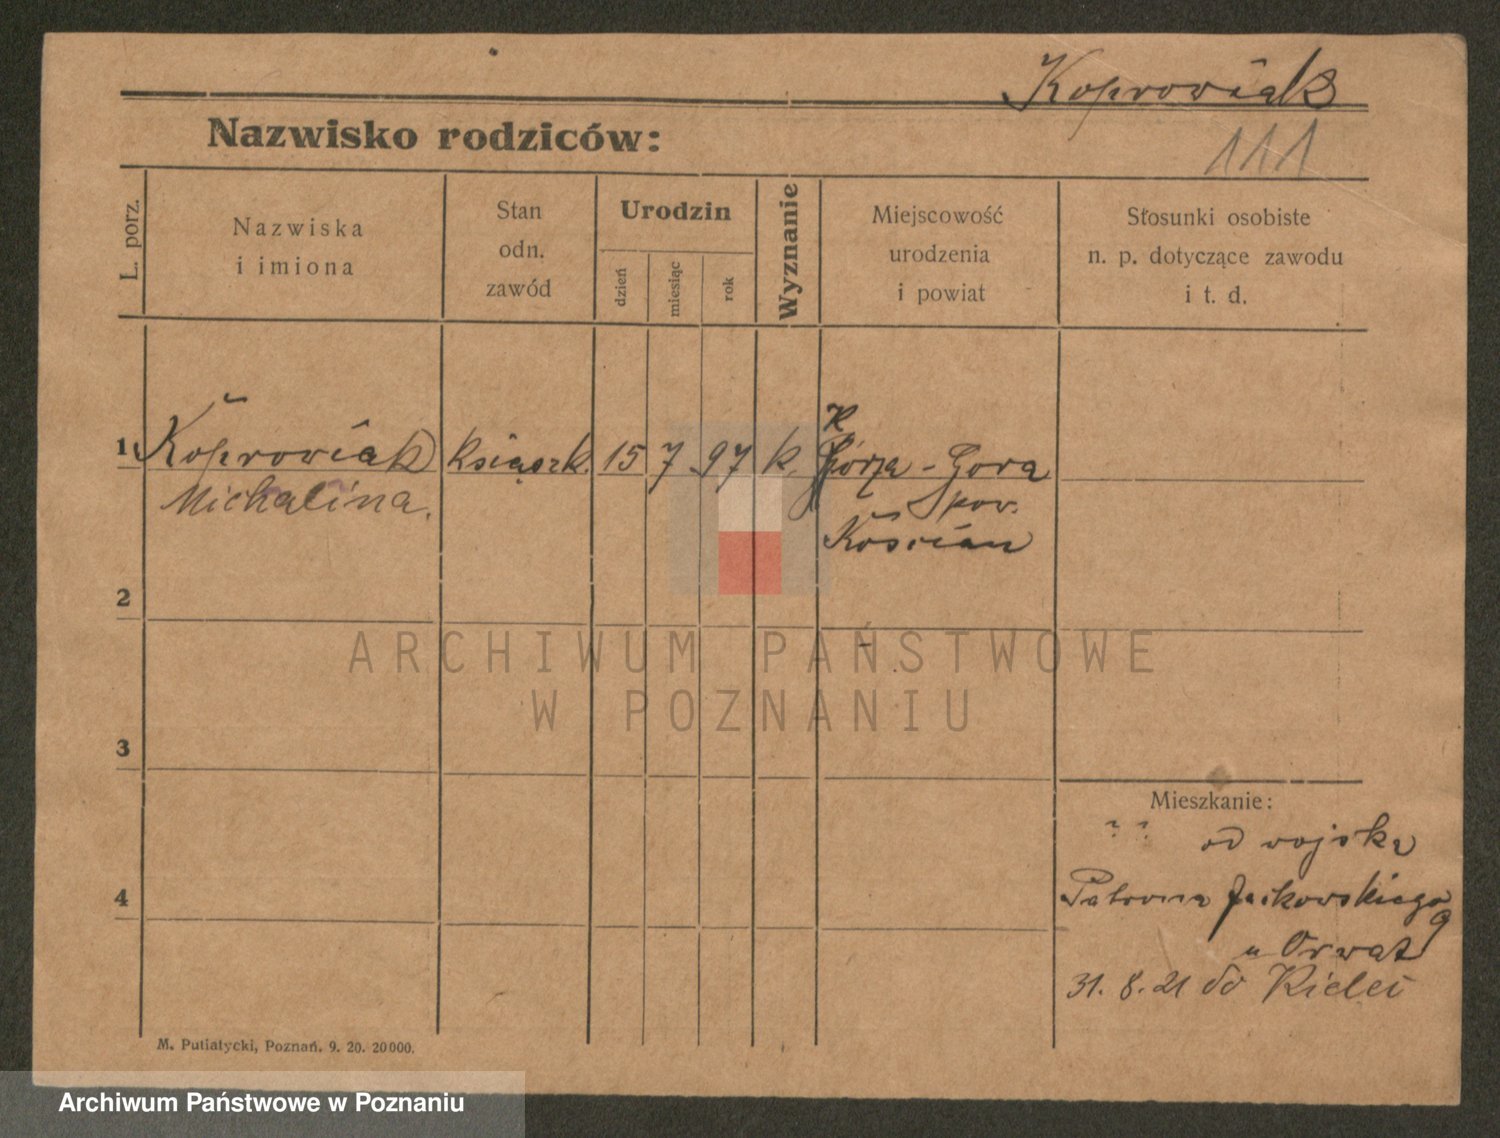 Koprowiak
Nazwisko rodziców:
111
L. porz.
Nazwiska
i imiona
Stan
odn.
zawód
Urodzin
dzień
miesiąc
rok
Wyznanie
Miejscowość
urodzenia
i powiat
Stosunki osobiste
n. p. dotyczące zawodu
i t. d.
K
1. Koprowiak książk. 15 7 97 k. Górja - Gora
Michalina. pow.
Kościan
2
ARCHIWUM PAŃSTWOWE
W POZNANIU
3
Mieszkanie:
?? od wojska
4
Patrona Jackowskiego
9
u Orwat
31. 8. 21 do Kielc
M. Putiatycki, Poznań. 9. 20. 20000.
Archiwum Państwowe w Poznaniu